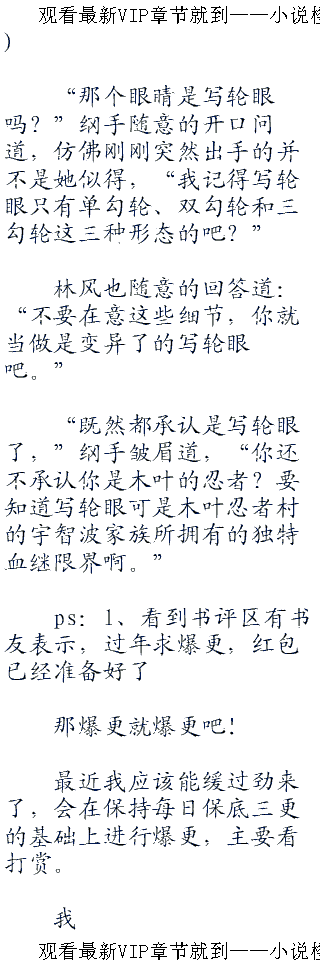 观看最新VIP章节就到——小说楼
)
“那个眼睛是写轮眼
吗？”纲手随意的开口问
道，仿佛刚刚突然出手的并
不是她似得，“我记得写轮
眼只有单勾轮、双勾轮和三
勾轮这三种形态的吧？”
林风也随意的回答道：
“不要在意这些细节，你就
当做是变异了的写轮眼
吧。”
“既然都承认是写轮眼
了，”纲手皱眉道，“你还
不承认你是木叶的忍者？要
知道写轮眼可是木叶忍者村
的宇智波家族所拥有的独特
血继限界啊。”
ps：1、看到书评区有书
友表示，过年求爆更，红包
已经准备好了
那爆更就爆更吧！
最近我应该能缓过劲来
了，会在保持每日保底三更
的基础上进行爆更，主要看
打赏。
我
观看最新VIP章节就到——小说楼